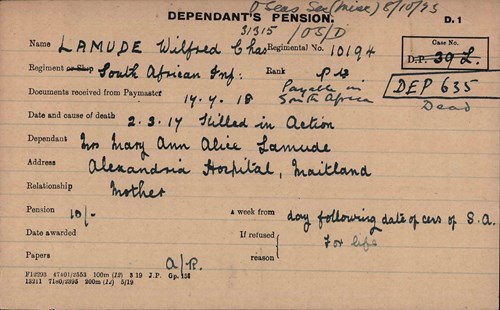 O Seas See (Misc) 8/10/23
DEPENDANT'S PENSION.
D. 1
31315 /OS/D
Name LAMUDE Wilfred Chas Regimental No. 10194
Case No.
D.P. 39 L.
Regiment or Ship South African Inf: Rank Pte
DEP 635
Documents received from Paymaster 17.4.18 Payable in South Africa
Dead
Date and cause of death 2.3.17 Killed in Action
Dependant Mrs Mary Ann Alice Lamude
Address Alexandria Hospital, Maitland
Relationship Mother
Pension 10/- a week from day following date of cess of S.A.
Date awarded If refused reason For life
Papers A/R.
F12293 47401/2553 100m (12) 2 19 J.P. Gp. 151
13211 7180/2395 200m (12) 5/19